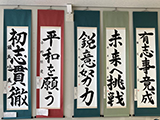 有志竟成
未来へ挑戦
鋭意努力
平和を願う
初志貫徹